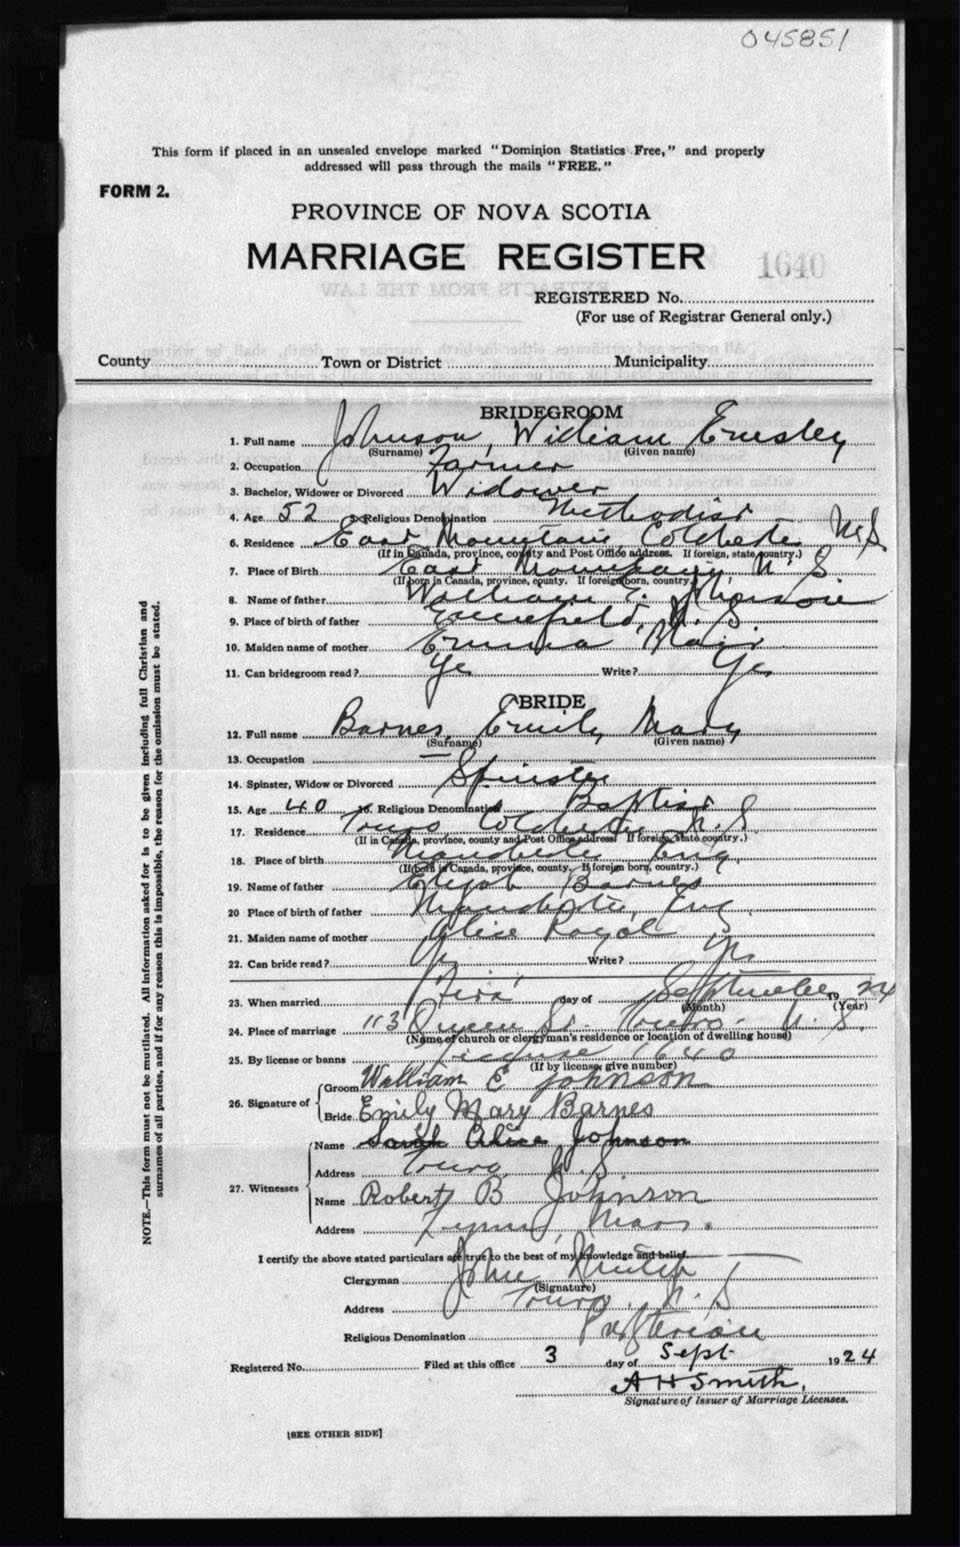 045851
This form if placed in an unsealed envelope marked "Dominion Statistics Free," and properly
addressed will pass through the mails "FREE."
FORM 2.
PROVINCE OF NOVA SCOTIA
MARRIAGE REGISTER
1640
REGISTERED No.
(For use of Registrar General only.)
County Town or District Municipality
BRIDEGROOM
1. Full name Johnson, William Emsley
(Surname) (Given name)
2. Occupation Farmer
3. Bachelor, Widower or Divorced Widower
4. Age 52 5. Religious Denomination Methodist
6. Residence East Mountain, Colchester N.S
(If in Canada, province, county and Post Office address. If foreign, state country.)
7. Place of Birth East Mountain, N. S
(If born in Canada, province, county. If foreign born, country.)
8. Name of father William E. Johnson
9. Place of birth of father N. S.
10. Maiden name of mother Emma Blair
11. Can bridegroom read? Yes Write? Yes
BRIDE
12. Full name Barnes, Emily Mary
(Surname) (Given name)
13. Occupation —
14. Spinster, Widow or Divorced Spinster
15. Age 40 16. Religious Denomination Baptist
17. Residence Truro Colchester N. S.
(If in Canada, province, county and Post Office address If foreign, state country.)
18. Place of birth Manchester Eng.
(If born in Canada, province, county. If foreign born, country.)
19. Name of father Elijah Barnes
20 Place of birth of father Manchester, Eng.
21. Maiden name of mother Alice Royal
22. Can bride read? Write?
23. When married First day of September 1924
(Month) (Year)
24. Place of marriage 113 Queen St. Truro. N. S.
(Name of church or clergyman's residence or location of dwelling house)
25. By license or banns License 1640
(If by license, give number)
26. Signature of Groom William E Johnson
Bride Emily Mary Barnes
27. Witnesses Name Sarah Alice Johnson
Address Truro, N. S.
Name Robert B Johnson
Address Lynn, Mass.
I certify the above stated particulars are true to the best of my knowledge and belief.
Clergyman John
(Signature)
Address Truro, N. S
Religious Denomination
Registered No. Filed at this office 3 day of Sept 1924
A H Smith,
Signature of Issuer of Marriage Licenses.
[SEE OTHER SIDE]
NOTE.—This form must not be mutilated. All information asked for is to be given including full Christian and
surnames of all parties, and if for any reason this is impossible, the reason for the omission must be stated.